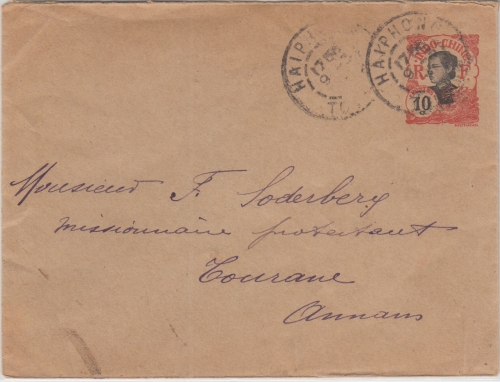 HAIPHONG
HAIPHONG
INDO-CHINE
R F
10
Monsieur F. Soderberg
missionnaire protestant
Tourane
Annam